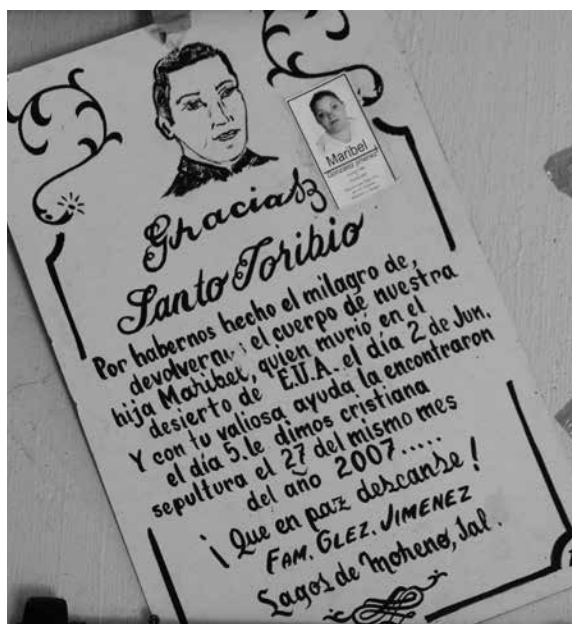 Maribel
Gonzalez Jimenez
Gracias
Santo Toribio
Por habernos hecho el milagro de,
el cuerpo de nuestra
hija Maribel, quien murió en el
desierto de E.U.A. el día 2 de Jun.
Y con tu valiosa ayuda la encontraron
el día 5. le dimos cristiana
sepultura el 27 del mismo mes
del año 2007.....
¡Que en paz descanse!
FAM. GLEZ. JIMENEZ
Lagos de Moreno, Jal.